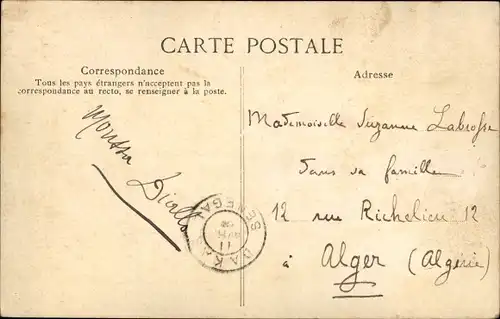 CARTE POSTALE
Correspondance
Tous les pays étrangers n'acceptent pas la
correspondance au recto, se renseigner à la poste.
Moussa
Diallo
Adresse
Mademoiselle Suzanne Labrosse
dans sa famille
12 rue Richelieu 12
à Alger (Algérie)
SENEGAL
DAKAR
11